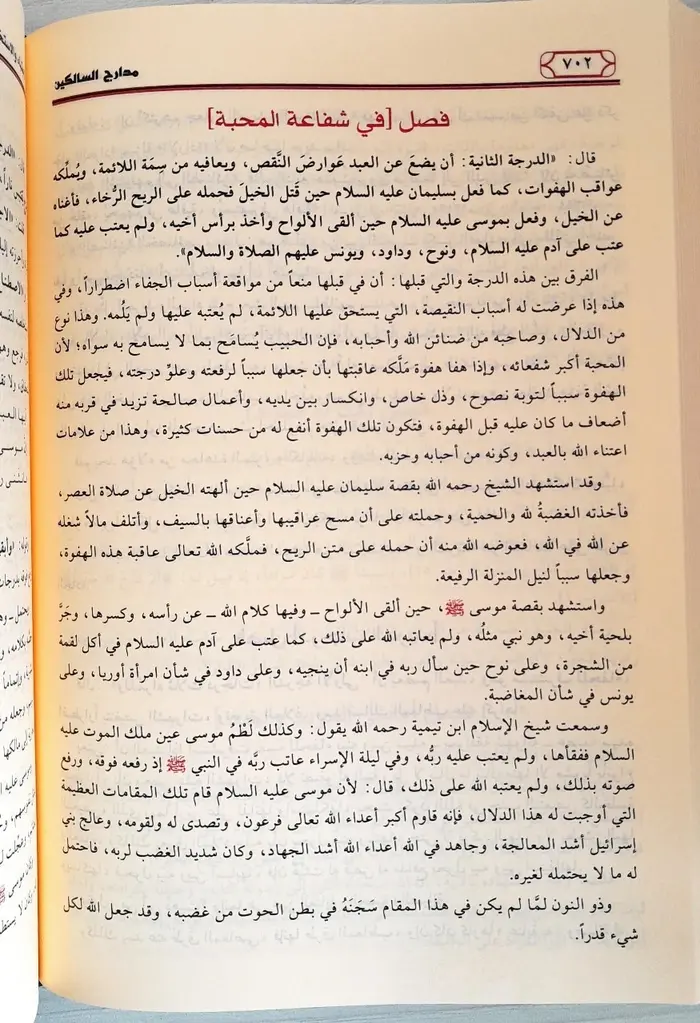 ٧٠٢
مدارج السالكين
فصل [في شفاعة المحبة]
قال: «الدرجة الثانية: أن يضعَ عن العبد عَوارضَ النَّقص، ويعافيه من سِمَة اللائمة، ويُملِّكه
عواقب الهفوات، كما فعل بسليمان عليه السلام حين قَتل الخيلَ فحمله على الريح الرُّخاء، فأغناه
عن الخيل، وفعل بموسى عليه السلام حين ألقى الألواح وأخذ برأس أخيه، ولم يعتب عليه كما
عتب على آدم عليه السلام، ونوح، وداود، ويونس عليهم الصلاة والسلام».
الفرق بين هذه الدرجة والتي قبلها: أن في قبلها منعاً من مواقعة أسباب الجفاء اضطراراً، وفي
هذه إذا عرضت له أسباب النقيصة، التي يستحق عليها اللائمة، لم يُعتبه عليها ولم يَلُمه. وهذا نوع
من الدلال، وصاحبه من ضنائن الله وأحبابه، فإن الحبيب يُسامَح بما لا يسامح به سواه؛ لأن
المحبة أكبر شفعائه، وإذا هفا هفوة مَلَّكه عاقبتها بأن جعلها سبباً لرفعته وعلوِّ درجته، فيجعل تلك
الهفوة سبباً لتوبة نصوح، وذل خاص، وانكسار بين يديه، وأعمال صالحة تزيد في قربه منه
أضعاف ما كان عليه قبل الهفوة، فتكون تلك الهفوة أنفع له من حسنات كثيرة، وهذا من علامات
اعتناء الله بالعبد، وكونه من أحبابه وحزبه.
وقد استشهد الشيخ رحمه الله بقصة سليمان عليه السلام حين ألهته الخيل عن صلاة العصر،
فأخذته الغضبةُ لله والحمية، وحملته على أن مسح عراقيبها وأعناقها بالسيف، وأتلف مالاً شغله
عن الله في الله، فعوضه الله منه أن حمله على متن الريح، فملَّكه الله تعالى عاقبة هذه الهفوة،
وجعلها سبباً لنيل المنزلة الرفيعة.
واستشهد بقصة موسى ﷺ، حين ألقى الألواح ـ وفيها كلام الله ـ عن رأسه، وكسرها، وجَرَّ
بلحية أخيه، وهو نبي مثلُه، ولم يعاتبه الله على ذلك، كما عتب على آدم عليه السلام في أكل لقمة
من الشجرة، وعلى نوح حين سأل ربه في ابنه أن ينجيه، وعلى داود في شأن امرأة أوريا، وعلى
يونس في شأن المغاضبة.
وسمعت شيخ الإسلام ابن تيمية رحمه الله يقول: وكذلك لَطْمُ موسى عين ملك الموت عليه
السلام ففقأها، ولم يعتب عليه ربُّه، وفي ليلة الإسراء عاتب ربَّه في النبي ﷺ إذ رفعه فوقه، ورفع
صوته بذلك، ولم يعتبه الله على ذلك، قال: لأن موسى عليه السلام قام تلك المقامات العظيمة
التي أوجبت له هذا الدلال، فإنه قاوم أكبر أعداء الله تعالى فرعون، وتصدى له ولقومه، وعالج بني
إسرائيل أشد المعالجة، وجاهد في الله أعداء الله أشد الجهاد، وكان شديد الغضب لربه، فاحتمل
له ما لا يحتمله لغيره.
وذو النون لمَّا لم يكن في هذا المقام سَجَنَهُ في بطن الحوت من غضبه، وقد جعل الله لكل
شيء قدراً.